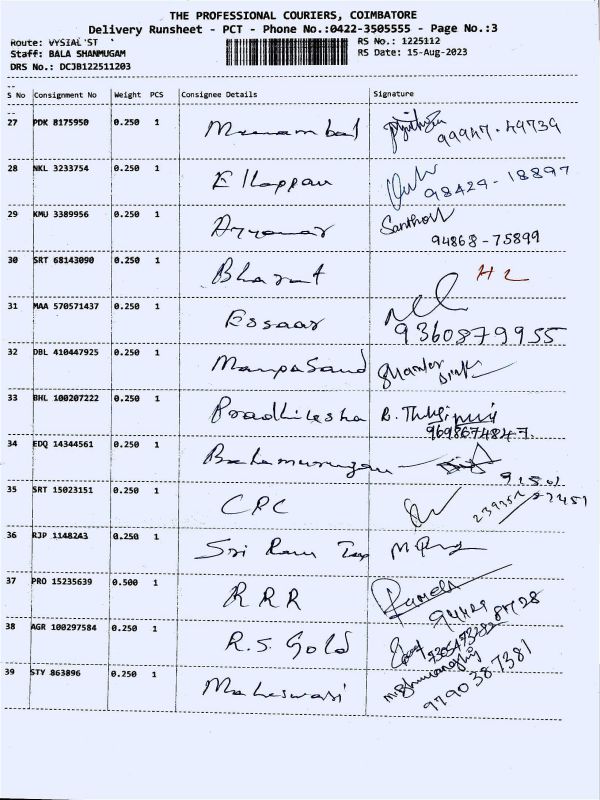 THE PROFESSIONAL COURIERS, COIMBATORE
Delivery Runsheet - PCT - Phone No.:0422-3505555 - Page No.:3
Route: VYSIAL ST RS No.: 1225112
Staff: BALA SHANMUGAM RS Date: 15-Aug-2023
DRS No.: DCJB122511203
S No Consignment No Weight PCS Consignee Details Signature
27 PDK 8175950 0.250 1 99947-49739
28 NKL 3233754 0.250 1 Ellappan 98429-18897
29 KMU 3389956 0.250 1 Santhosh
94868-75899
30 SRT 68143090 0.250 1 Bharat
31 MAA 570571437 0.250 1 Essaar
9360879955
32 DBL 410447925 0.250 1 ManpaSand
33 BHL 100207222 0.250 1 Pradhiksha
9698674847
34 EDQ 14344561 0.250 1 Balamurugan
35 SRT 15023151 0.250 1 CPC
36 RJP 1148243 0.250 1 Sri Ram
37 PRO 15235639 0.500 1 RRR Ramesh
38 AGR 100297584 0.250 1 R.S. Gold
39 STY 863896 0.250 1 Maheswari 9790387381